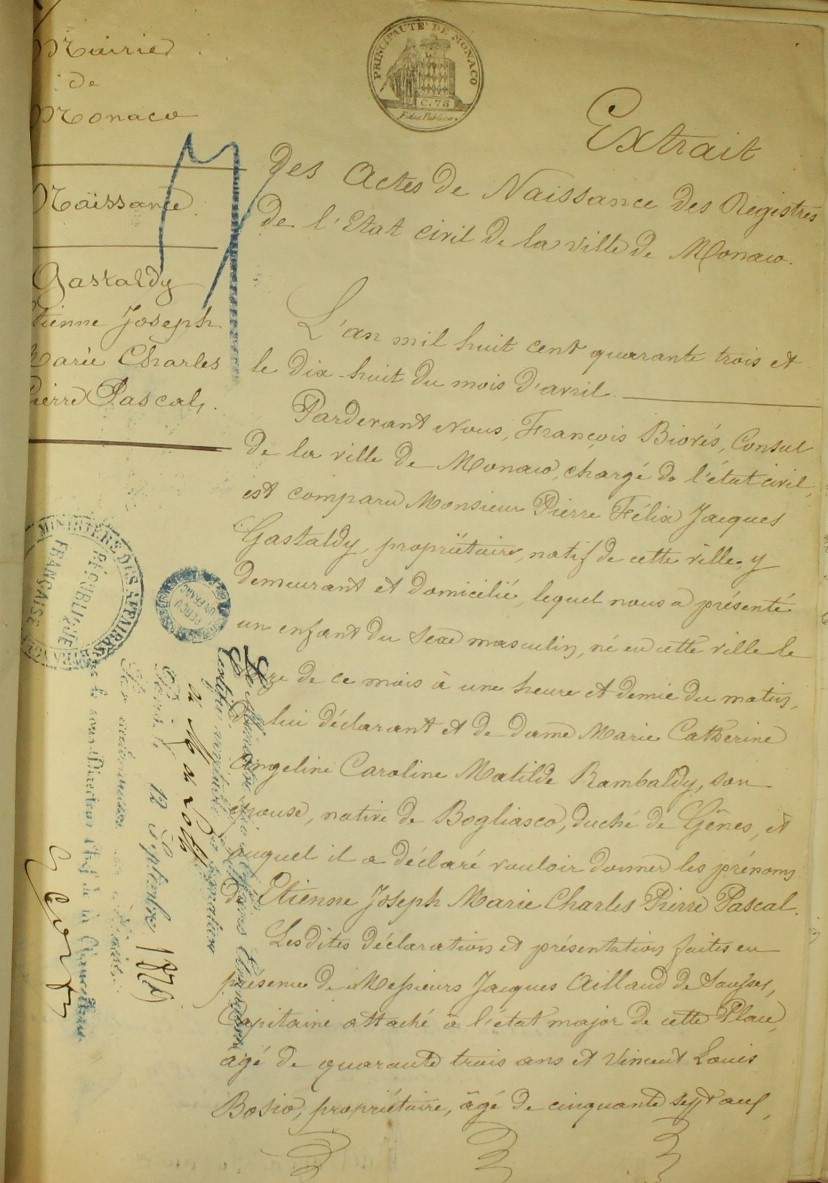 PRINCIPAUTÉ DE MONACO
C. 75
Mairie
de
Monaco
Naissance
Gastaldy
tienne Joseph
Marie Charles
Pierre Pascal.
Extrait
des Actes de Naissance des Registres
de l'Etat civil de la ville de Monaco.
L'an mil huit cent quarante trois et
le dix-huit du mois d'avril.
Pardevant Nous, François Biovés, Consul
de la ville de Monaco, chargé de l'état civil,
est comparu Monsieur Pierre Félix Jacques
Gastaldy, propriétaire, natif de cette ville, y
demeurant et domicilié, lequel nous a présenté
un enfant du sexe masculin, né en cette ville le
de ce mois à une heure et demie du matin,
lui déclarant et de dame Marie Catherine
Angeline Caroline Matilde Rambaldy, son
épouse, native de Bogliasco, duché de Gênes, et
auquel il a déclaré vouloir donner les prénoms
d'Etienne Joseph Marie Charles Pierre Pascal.
Lesdites déclaration et présentation faites en
présence de Messieurs Jacques Aillaud de
Capitaine attaché à l'état major de cette Place,
âgé de quarante trois ans et Vincent Louis
Bosio, propriétaire, âgé de cinquante sept ans,
MINISTÈRE DES AFFAIRES
RÉPUBLIQUE
FRANÇAISE
Le Ministre des Affaires Etrangères
Certifie véritable la signature
de M
Paris le 12 Septembre 18
Par autorisation du Ministre
le sous-Directeur Chef de la Chancellerie